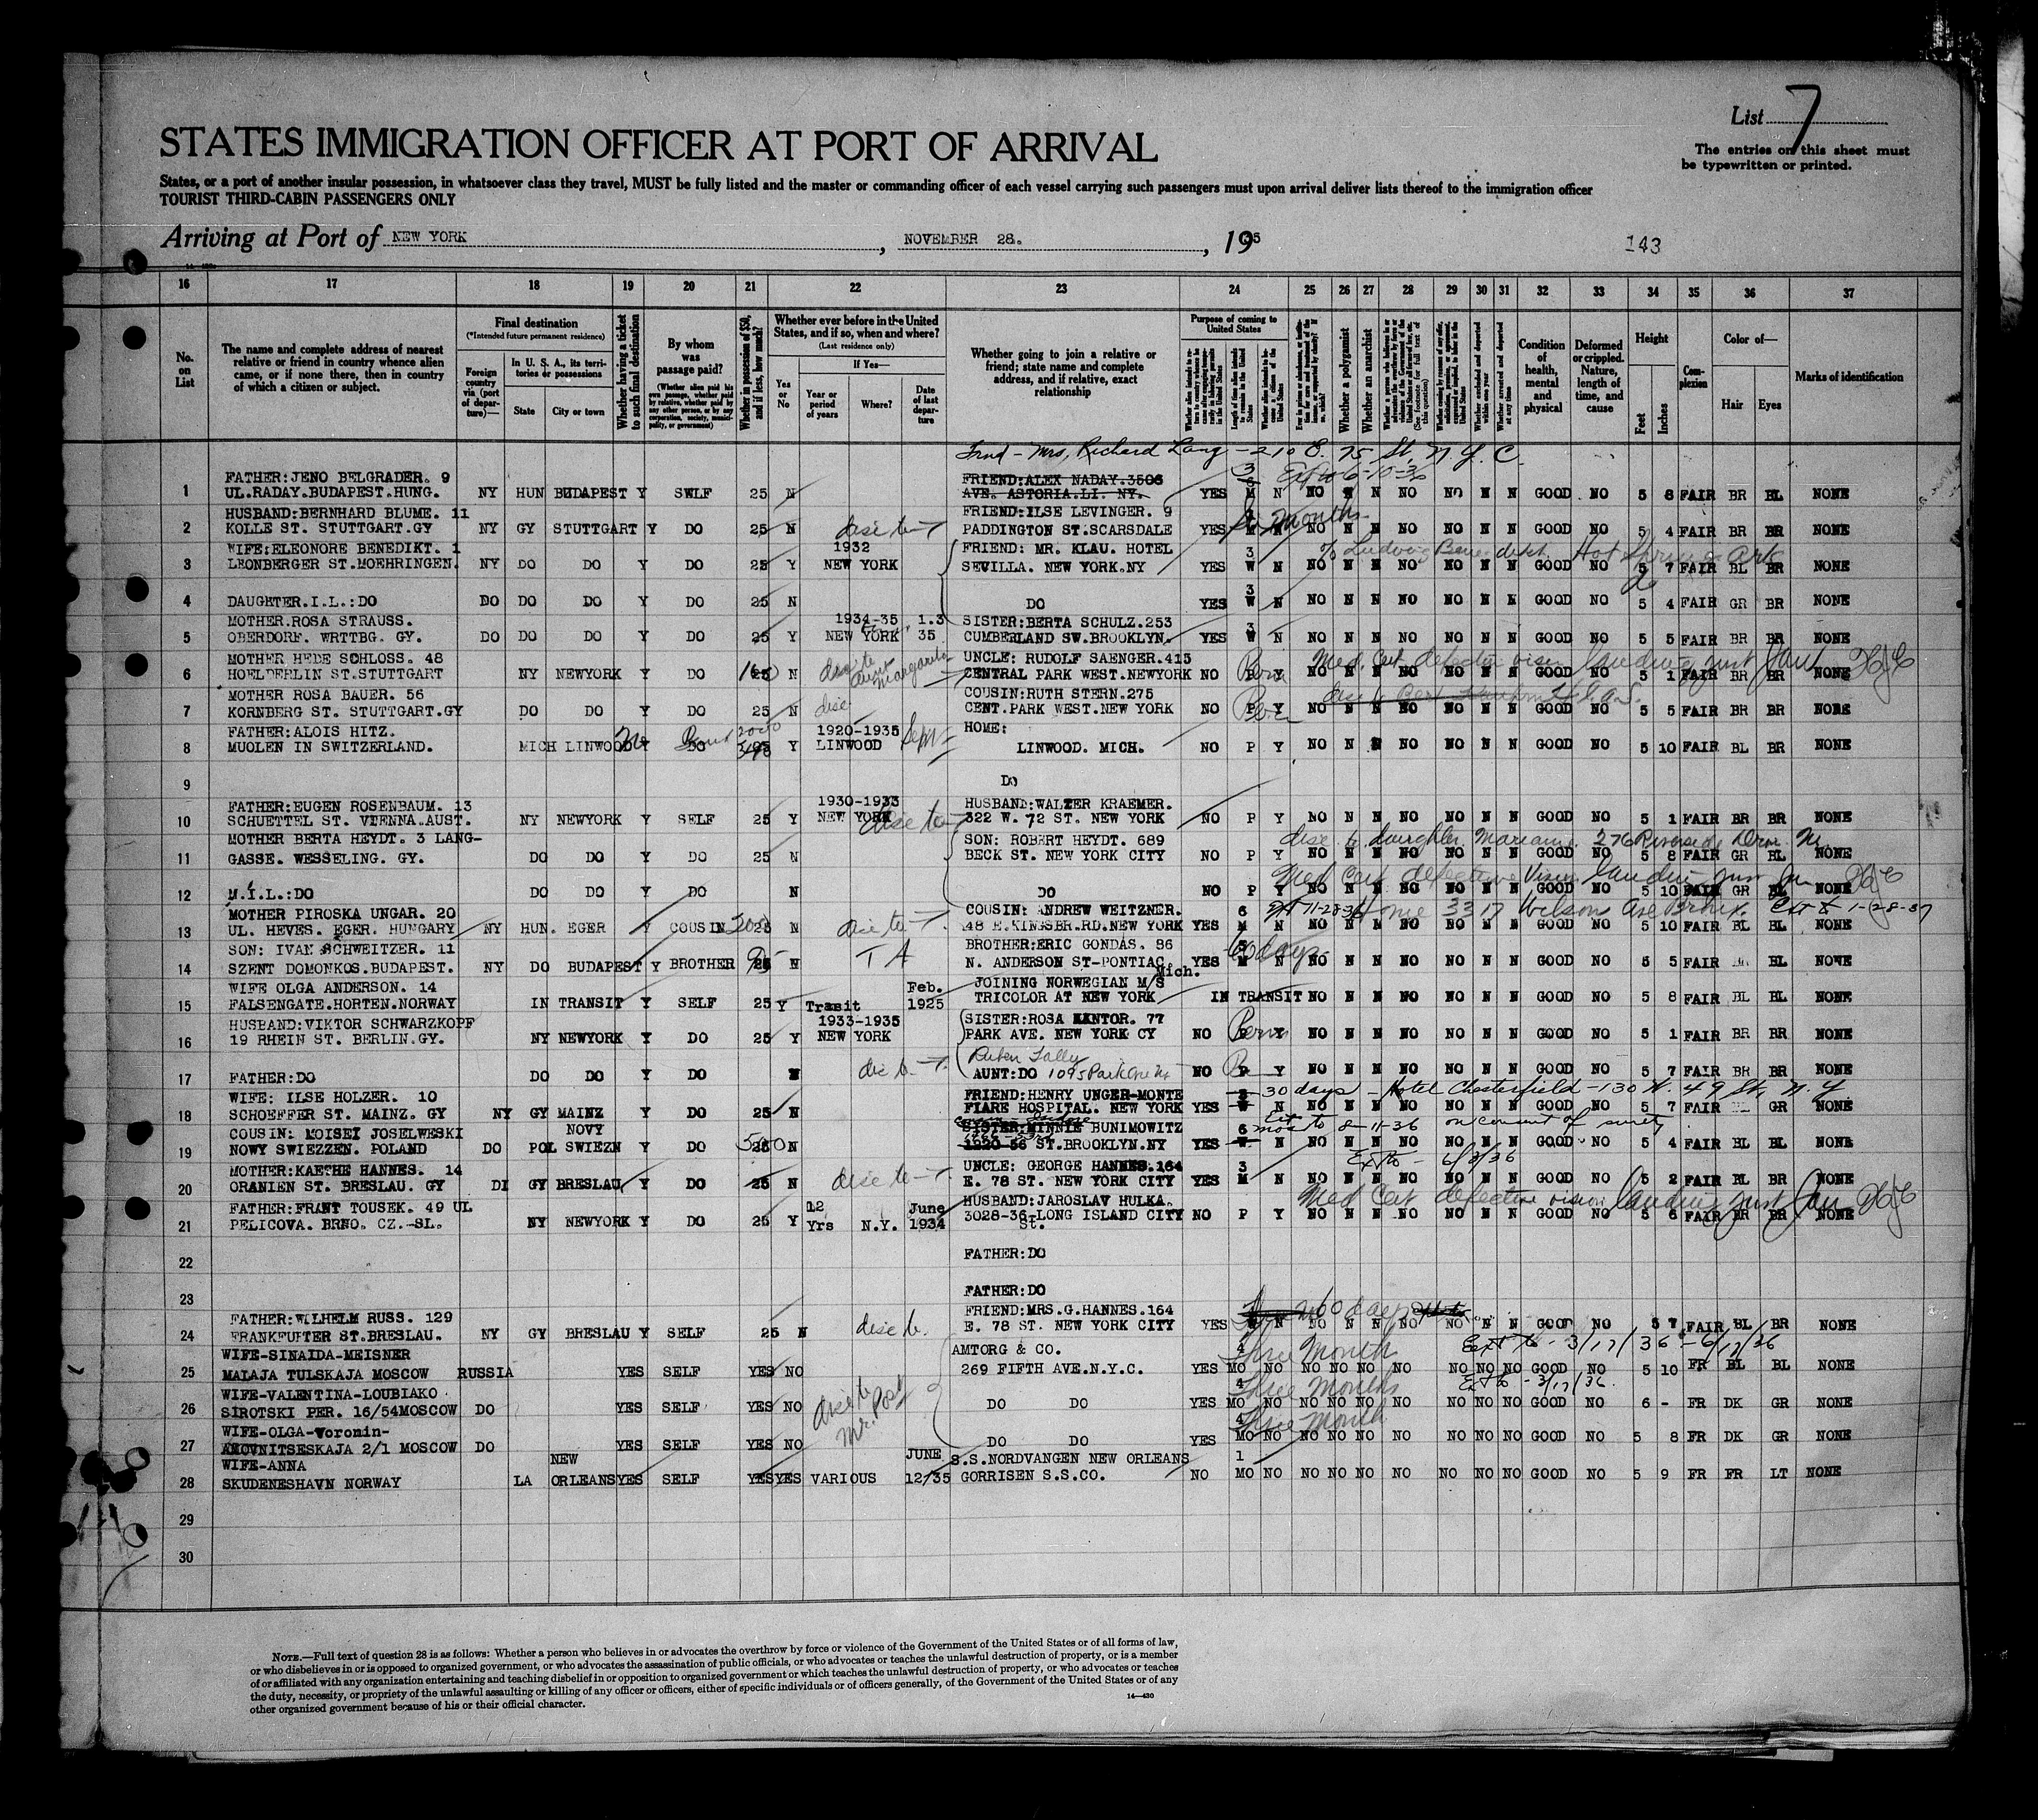 List 7
The entries on this sheet must
be typewritten or printed.
STATES IMMIGRATION OFFICER AT PORT OF ARRIVAL
States, or a port of another insular possession, in whatsoever class they travel, MUST be fully listed and the master or commanding officer of each vessel carrying such passengers must upon arrival deliver lists thereof to the immigration officer
TOURIST THIRD-CABIN PASSENGERS ONLY
Arriving at Port of NEW YORK, NOVEMBER 28., 1935
143
16 17 18 19 20 21 22 23 24 25 26 27 28 29 30 31 32 33 34 35 36 37
No. on List
The name and complete address of nearest relative or friend in country whence alien came, or if none there, then in country of which a citizen or subject.
Final destination
(*Intended future permanent residence)
Foreign country via (port of departure)—
In U. S. A., its territories or possessions
State City or town
Whether having a ticket to such final destination
By whom was passage paid?
(Whether alien paid his own passage, whether paid by relative, whether paid by any other person, or by any corporation, society, municipality, or government)
Whether in possession of $50, and if less, how much?
Whether ever before in the United States, and if so, when and where?
(Last residence only)
Yes or No
If Yes—
Year or period of years
Where?
Date of last departure
Whether going to join a relative or friend; state name and complete address, and if relative, exact relationship
Purpose of coming to United States
Whether a polygamist
Whether an anarchist
Condition of health, mental and physical
Deformed or crippled. Nature, length of time, and cause
Height
Feet Inches
Complexion
Color of—
Hair Eyes
Marks of identification
Frnd - Mrs. Richard Lang - 210 E. 75 St, N.Y.C.
3 Ext to 6-10-36
FATHER:JENO BELGRADER. 9 FRIEND:ALEX NADAY.3506
1 UL.RADAY.BUDAPEST.HUNG. NY HUN BUDAPEST Y SWLF 25 N AVE. ASTORIA.LI. NY. YES M N NO N N NO NO N N GOOD NO 5 8 FAIR BR BL NONE
HUSBAND:BERNHARD BLUME. 11 FRIEND:ILSE LEVINGER. 9 months
2 KOLLE ST. STUTTGART.GY NY GY STUTTGART Y DO 25 N disc to PADDINGTON ST.SCARSDALE YES M N NO N N NO NO N N GOOD NO 5 4 FAIR BR BR NONE
WIFE:ELEONORE BENEDIKT. 1 1932 FRIEND: MR. KLAU. HOTEL 3 % Ludwig Benedikt Hot Springs Ark
3 LEONBERGER ST.MOEHRINGEN. NY DO DO Y DO 25 Y NEW YORK SEVILLA. NEW YORK.NY YES W N NO N N NO NO N N GOOD NO 5 7 FAIR BL BR NONE
3 do
4 DAUGHTER.I.L.:DO DO DO DO Y DO 25 N DO YES W N NO N N NO NO N N GOOD NO 5 4 FAIR GR BR NONE
MOTHER.ROSA STRAUSS. 1934-35 1.3 SISTER:BERTA SCHULZ.253 3
5 OBERDORF. WRTTBG. GY. DO DO DO Y DO 25 Y NEW YORK 35 CUMBERLAND SW.BROOKLYN. YES W N NO N N NO NO N N GOOD NO 5 5 FAIR BR BR NONE
MOTHER HEDE SCHLOSS. 48 disc to aunt Margarita UNCLE: RUDOLF SAENGER.415 Perm Med. Cert defective vision landing just
6 HOELDERLIN ST.STUTTGART NY NEWYORK Y DO 25 N CENTRAL PARK WEST.NEWYORK NO P Y NO N N NO NO N N GOOD NO 5 1 FAIR BR BR NONE
MOTHER ROSA BAUER. 56 disc COUSIN:RUTH STERN.275
7 KORNBERG ST. STUTTGART.GY DO DO Y DO 25 N CENT.PARK WEST.NEW YORK NO P Y NO N N NO NO N N GOOD NO 5 5 FAIR BR BR NONE
FATHER:ALOIS HITZ. 1920-1935 HOME:
8 MUOLEN IN SWITZERLAND. MICH LINWOOD Y DO Y LINWOOD LINWOOD. MICH. NO P Y NO N N NO NO N N GOOD NO 5 10 FAIR BL BR NONE
9 DO
FATHER:EUGEN ROSENBAUM. 13 1930-1933 HUSBAND:WALTER KRAEMER.
10 SCHUETTEL ST. VIENNA.AUST. NY NEWYORK Y SELF 25 Y NEW YORK disc to 322 W. 72 ST. NEW YORK NO P Y NO N N NO NO N N GOOD NO 5 1 FAIR BR BR NONE
MOTHER BERTA HEYDT. 3 LANG- SON: ROBERT HEYDT. 689 disc to daughter Mariam 276 Riverside Drive
11 GASSE. WESSELING. GY. DO DO Y DO 25 N BECK ST. NEW YORK CITY NO P Y NO N N NO NO N N GOOD NO 5 8 FAIR GR BL NONE
Med Cert defective vision landing just
12 M.I.L.:DO DO DO Y DO N DO NO P Y NO N N NO NO N N GOOD NO 5 10 FAIR GR BL NONE
MOTHER PIROSKA UNGAR. 20 COUSIN: ANDREW WEITZNER. 6 3317 Wilson Ave Bronx. Ext to 1-28-37
13 UL. HEVES. EGER. HUNGARY NY HUN. EGER Y COUSIN 25 N disc to 48 E.KINGSBR.RD.NEW YORK YES M N NO N N NO NO N N GOOD NO 5 10 FAIR BL BL NONE
SON: IVAN SCHWEITZER. 11 BROTHER:ERIC GONDAS. 86 60 days
14 SZENT DOMONKOS.BUDAPEST. NY DO BUDAPEST Y BROTHER 25 N T A N. ANDERSON ST-PONTIAC Mich. YES M N NO N N NO NO N N GOOD NO 5 5 FAIR BL NONE
WIFE OLGA ANDERSON. 14 Feb. JOINING NORWEGIAN M/S
15 FALSENGATE.HORTEN.NORWAY IN TRANSIT Y SELF 25 Y Transit 1925 TRICOLOR AT NEW YORK IN TRANSIT NO N N NO NO N N GOOD NO 5 8 FAIR BL BL NONE
HUSBAND:VIKTOR SCHWARZKOPF 1933-1935 SISTER:ROSA KANTOR. 77 Perm
16 19 RHEIN ST. BERLIN.GY. NY NEWYORK Y DO 25 Y NEW YORK PARK AVE. NEW YORK CY NO P Y NO N N NO NO N N GOOD NO 5 1 FAIR BR BR NONE
17 FATHER:DO DO DO Y DO N disc to AUNT:DO 1095 Park Ave NO P Y NO N N NO NO N N GOOD NO 5 7 FAIR BR BR NONE
WIFE: ILSE HOLZER. 10 FRIEND:HENRY UNGER-MONTE 30 days - Hotel Chesterfield - 130 W. 49 St, N.Y
18 SCHOEFFER ST. MAINZ. GY NY GY MAINZ Y DO 25 N FIARE HOSPITAL. NEW YORK YES W N NO N N NO NO N N GOOD NO 5 7 FAIR GR NONE
COUSIN: MOISEI JOSELWESKI NOVY SISTER:MINNIE BUNIMOWITZ 6 Ext to 8-11-36 on consent of surety
19 NOWY SWIEZZEN. POLAND DO POL SWIEZN Y DO 500 N 1920-56 ST.BROOKLYN.NY YES NO N N NO NO N N GOOD NO 5 4 FAIR BL BL NONE
MOTHER:KAETHE HANNES. 14 UNCLE: GEORGE HANNES.164 3 Ext to - 6/3/36
20 ORANIEN ST. BRESLAU. GY DI GY BRESLAU Y DO 25 N disc to E. 78 ST. NEW YORK CITY YES M N NO N N NO NO N N GOOD NO 5 2 FAIR BL BR NONE
FATHER:FRANT TOUSEK. 49 UL 12 June HUSBAND: JAROSLAV HULKA. Med Cert defective vision landing just
21 PELICOVA. BRNO. CZ.-SL. NY NEWYORK Y DO 25 Y Yrs N.Y. 1934 3028-36-LONG ISLAND CITY ST. NO P Y NO N N NO NO N N GOOD NO 5 6 FAIR BR BR NONE
22 FATHER:DO
23 FATHER:DO
FATHER:WILHELM RUSS. 129 FRIEND:MRS.G.HANNES.164 60 days
24 FRANKFURTER ST.BRESLAU. NY GY BRESLAU Y SELF 25 N disc to E. 78 ST. NEW YORK CITY YES N NO N N NO NO N N GOOD NO 5 7 FAIR BL BR NONE
WIFE-SINAIDA-MEISNER AMTORG & CO. 4 Three Months Ext to - 3/17/36 - 6/17/36
25 MALAJA TULSKAJA MOSCOW RUSSIA YES SELF YES NO 269 FIFTH AVE.N.Y.C. YES MO NO NO NO NO NO NO NO NO GOOD NO 5 10 FR BL BL NONE
WIFE-VALENTINA-LOUBIAKO disc to Mr. Post 4 Three Months Ext to - 3/17/36.
26 SIROTSKI PER. 16/54MOSCOW DO YES SELF YES NO DO DO YES MO NO NO NO NO NO NO NO NO GOOD NO 6 - FR DK GR NONE
WIFE-OLGA-Voronin- 4 Three Month
27 AMOVNITSESKAJA 2/1 MOSCOW DO YES SELF YES NO DO DO YES MO NO NO NO NO NO NO NO NO GOOD NO 5 8 FR DK GR NONE
WIFE-ANNA NEW JUNE S.S.NORDVANGEN NEW ORLEANS 1
28 SKUDENESHAVN NORWAY LA ORLEANS YES SELF YES YES VARIOUS 12/35 GORRISEN S.S.CO. NO MO NO NO NO NO NO NO NO NO GOOD NO 5 9 FR FR LT NONE
29
30
NOTE.—Full text of question 28 is as follows: Whether a person who believes in or advocates the overthrow by force or violence of the Government of the United States or of all forms of law,
or who disbelieves in or is opposed to organized government, or who advocates the assassination of public officials, or who advocates or teaches the unlawful destruction of property, or is a member
of or affiliated with any organization entertaining and teaching disbelief in or opposition to organized government or which teaches the unlawful destruction of property, or who advocates or teaches
the duty, necessity, or propriety of the unlawful assaulting or killing of any officer or officers, either of specific individuals or of officers generally, of the Government of the United States or of any
other organized government because of his or their official character.
14—430